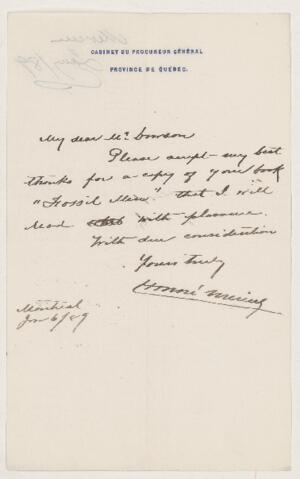 CABINET DU PROCUREUR GÉNÉRAL
PROVINCE DE QUÉBEC.
My dear Mr Dawson
Please accept my best
thanks for a copy of your book
"Fossil Men" that I will
read with pleasure.
With due consideration
Yours truly
Honoré Mercier
Montreal
Jan 6/89